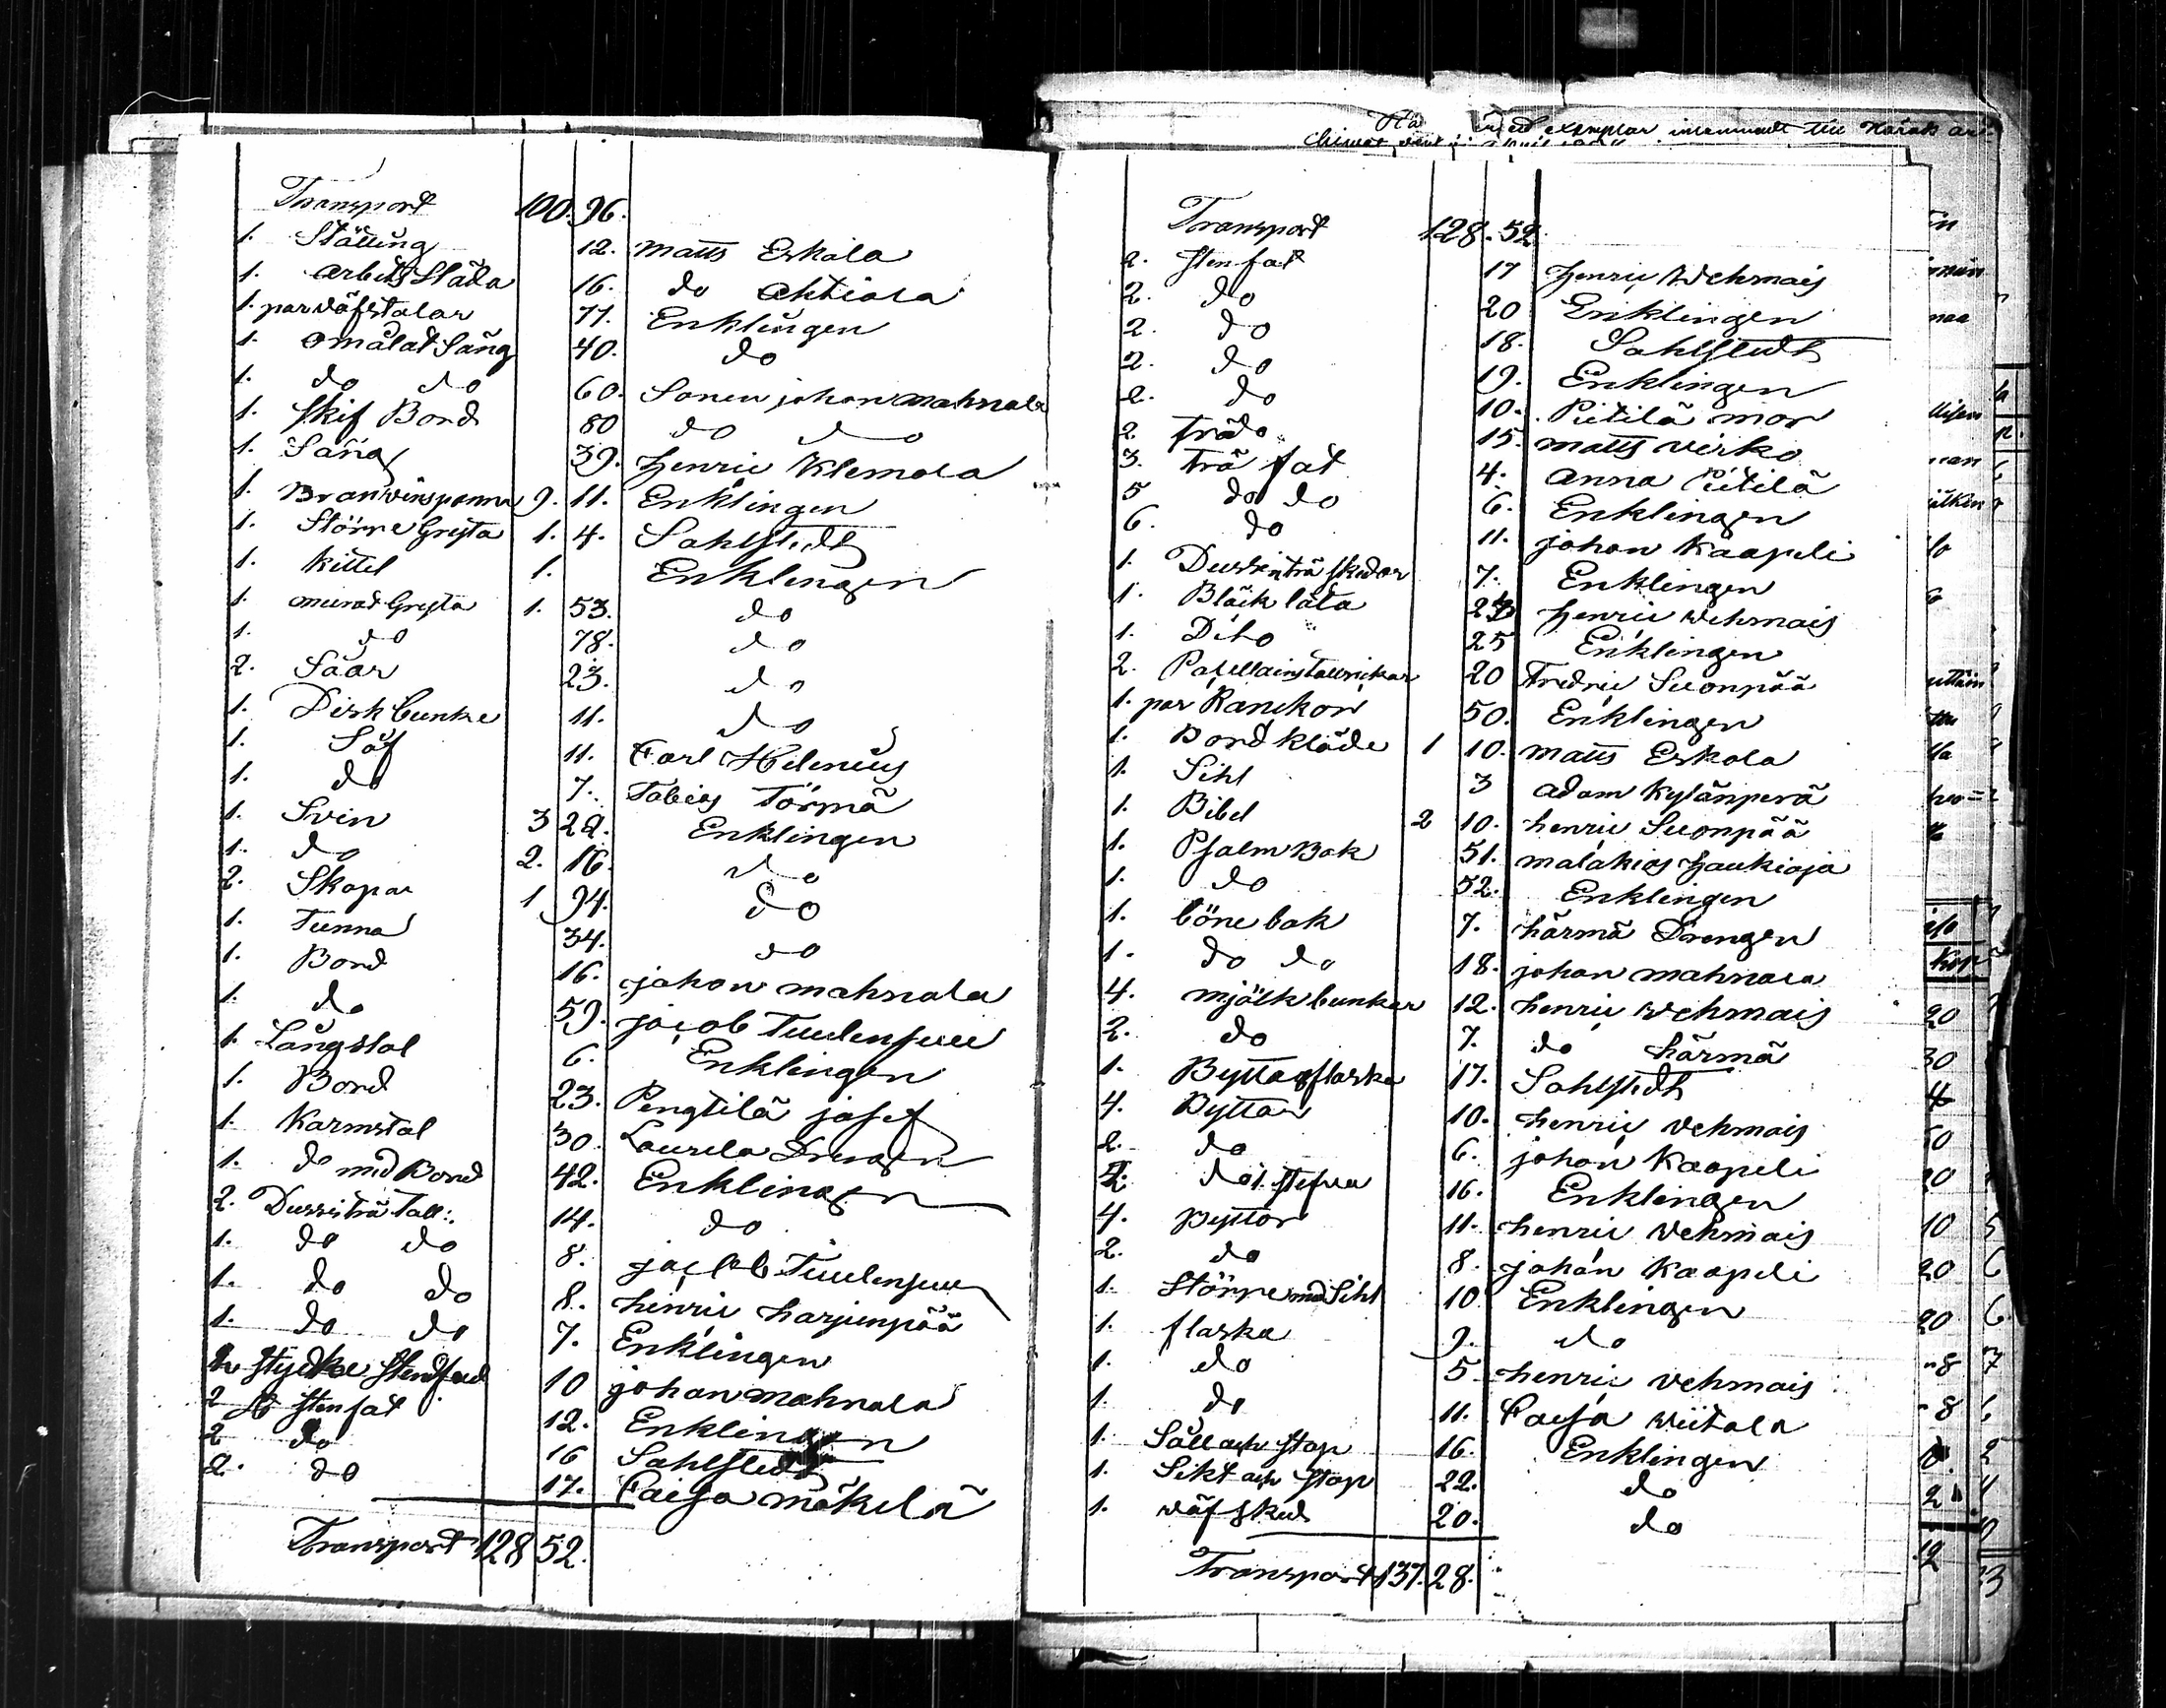 Transport 100. 96.
1. Ställing 12. matts Eskola
1. arbets Släda 16. do Ahtiola
1. par väfstalar 77. Enklingen
1. omålat Säng 40. do
1. do do 60. Sonen johan mahnala
1. skif Bord 80 do do
1. Säng 39. Henric Klemola
1. Branvinspanna 9. 11. Enklingen
1. Störrre Gryta 1. 4. Sahlstedt
1. Kittel 1. Enklingen
1. murad Gryta 1. 53. do
1. do 78. do
2. Såar 23. do
1. Disk bunke 11. do
1. Såf 11. Carl Helenius
1. do 7. Tobias Törmä
1. Svin 3 22. Enklingen
1. do 2. 16. do
2. Skopar 1 94. do
1. Tunna 34. do
1. Bord 16. johan mahnala
1. do 59. jacob Tuulensuu
1. Långstol 6. Enklingen
1. Bord 23. Pengtilä josef
1. Karmstol 30. Laurila Drengen
1. do med Bord 42. Enklingen
2. Dussin trä tall:. 14. do
1. do do 8. jacob Tuulensuu
1. do do 8. henric harjunpää
1. do do 7. Enklingen
2 stycke Stenfad 10 johan mahnala
2 stenfat 12. Enklingen
2 do 16 Sahlstedt
2. do 17. Caisa mäkelä
Transport 128 52.
Transport 128. 52.
2. stenfat 17 Henric Wehmais
2. do 20 Enklingen
2. do 18. Sahlstedt
2. do 19. Enklingen
2. do 10. Pietilä mor
2. träd. 15. matts virko
3. trä fat 4. anna Pietilä
5 do do 6. Enklingen
6. do 11. johan Kaapeli
1. Dussin trä skedar 7. Enklingen
1. Bläck låda henric wehmais
1. Dito 25 Enklingen
2. Posellains tallrickar 20 Fredric Suonpää
1. par Ranckor 50. Enklingen
1. Bord kläde 1 10. matts Eskola
1. Sihl 3 adam Kylänperä
1. Bibel 2 10. henric Suonpää
1. Psalm Bok 51. malakias haukioja
1. do 52. Enklingen
1. böne bok 7. härmä Drengen
1. do do 18. johan mahnala
4. mjölk bunkar 12. henric wehmais
2. do 7. do härmä
1. Bytta flaska 17. Sahlstedt
4. Byttor 10. henric vehmais
2. do 6. johan Kaapeli
2. do 1. stefva 16. Enklingen
4. Byttor 11. henric vehmais
2. do 8. johan Kaapeli
1. Störrre med Sihl 10 Enklingen
1. flaska 9. do
1. do 5 henric vehmais
1. do 11. Caisa wiitala
1. Såll ach stop 16. Enklingen
1. Sikt ach stop 22. do
1. wäf sked 20. do
Transport 137. 28.